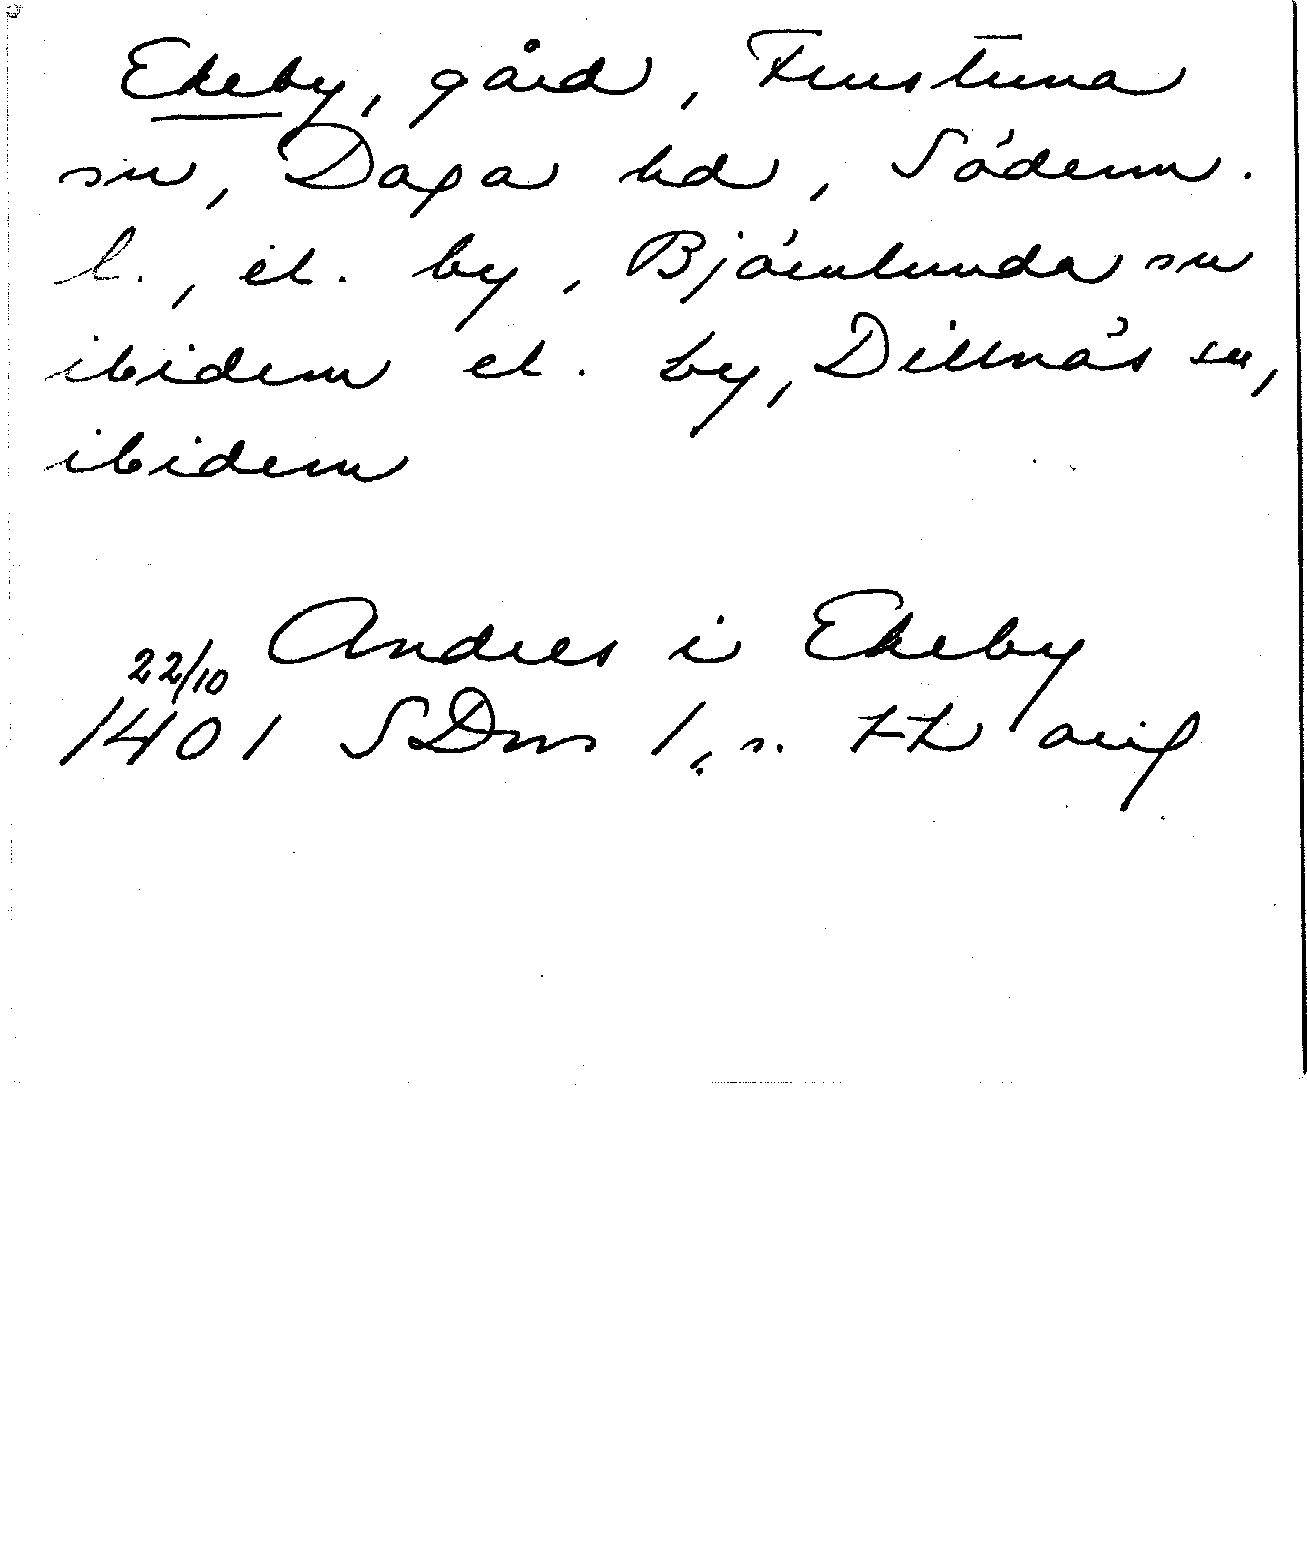 Ekeby, gård, Frustuna
sn, Daga hd, Söderm.
l., el. by, Björnlunda sn
ibidem el. by, Dillnäs sn,
ibidem
Andres i Ekeby
22/10
1401 SDns 1, s. 72 orig